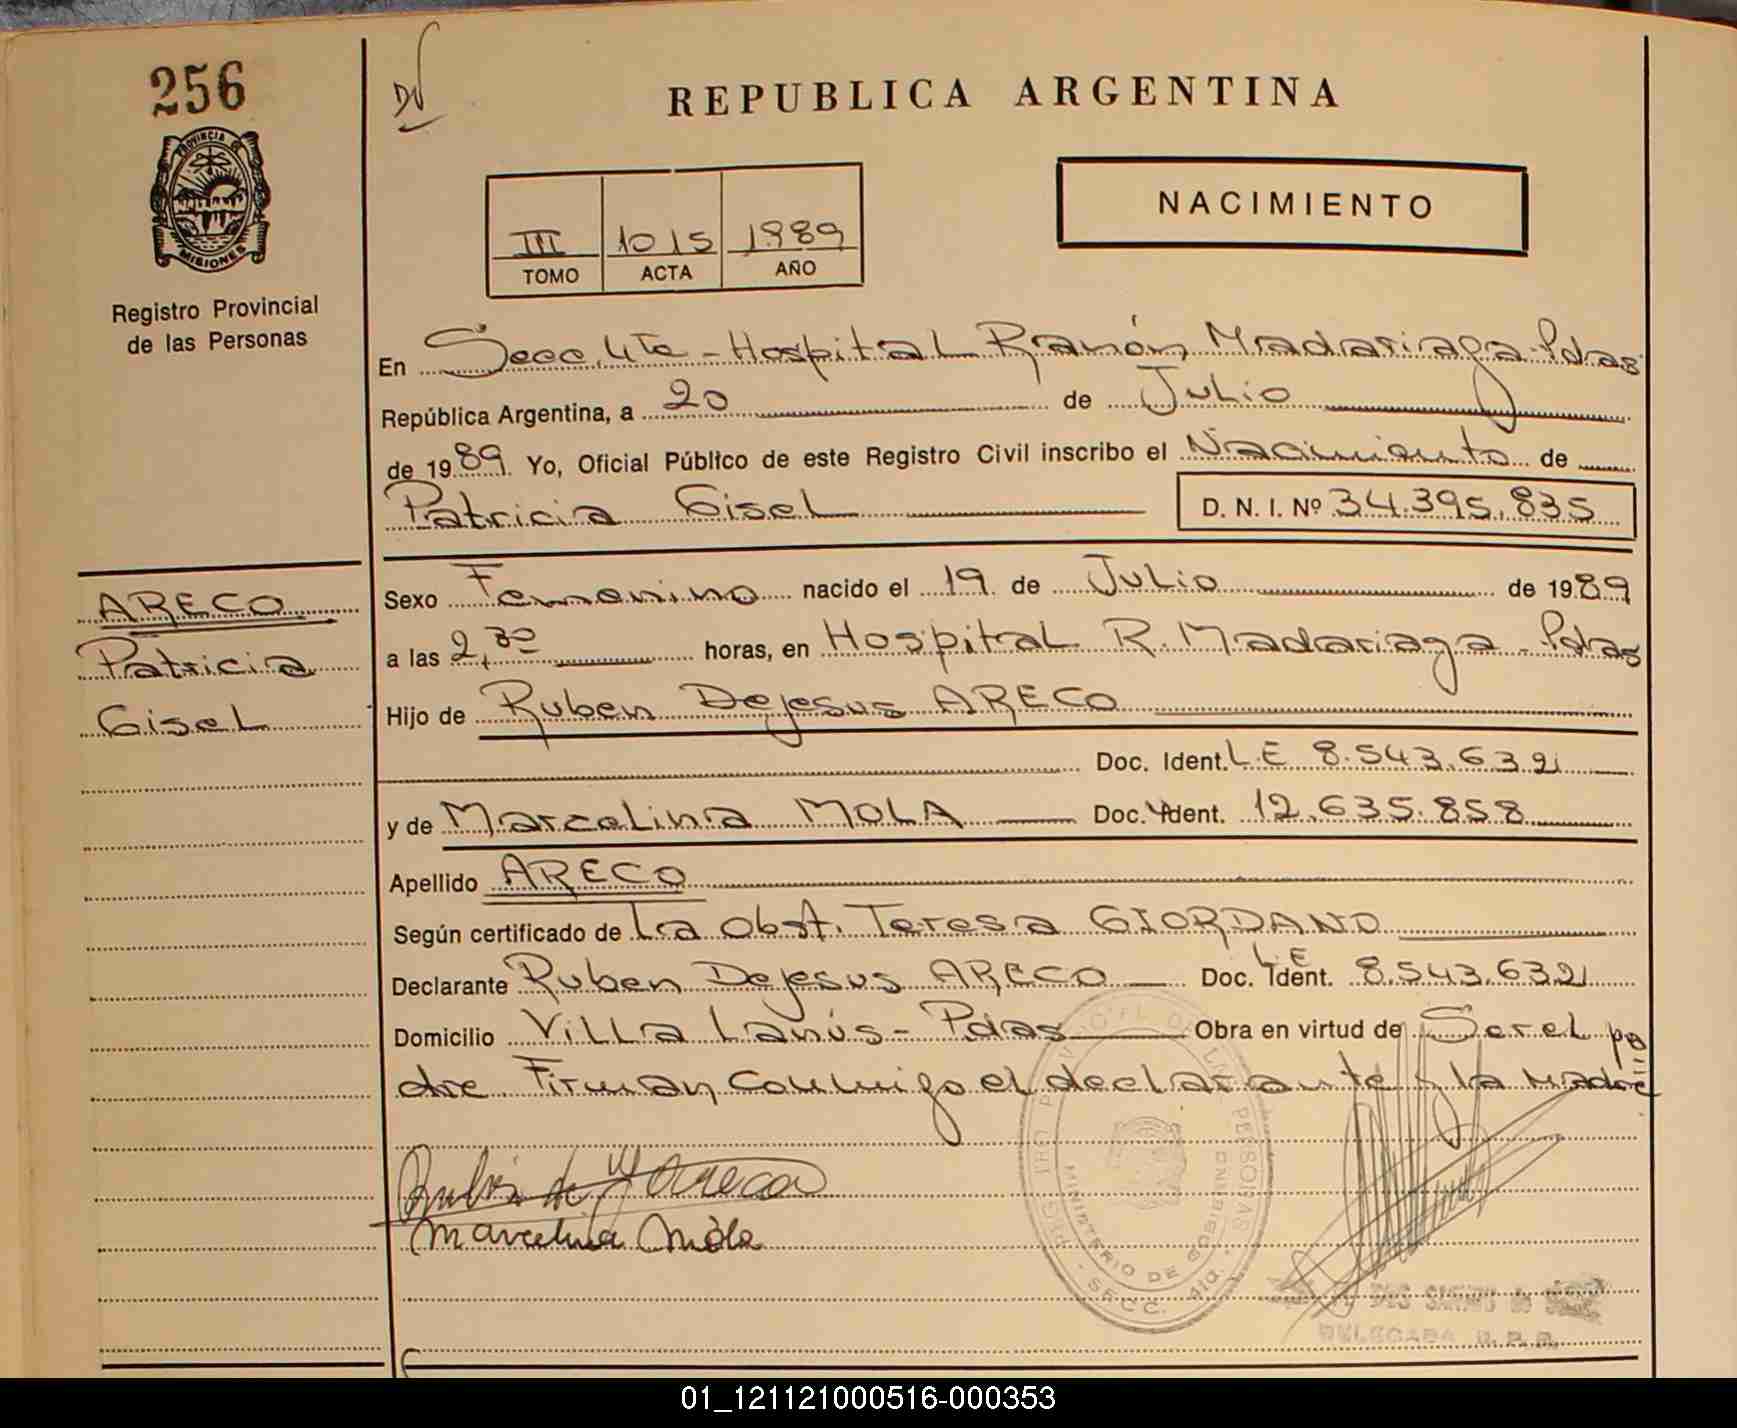 256
PROVINCIA DE
MISIONES
Registro Provincial
de las Personas
REPUBLICA ARGENTINA
NACIMIENTO
III 1015 1989
TOMO ACTA AÑO
En Secc. 4ta - Hospital Ramón Madariaga - Pdas
República Argentina, a 20 de Julio
de 1989 Yo, Oficial Público de este Registro Civil inscribo el Nacimiento de
Patricia Gisel D. N. I. Nº 34.395.835
ARECO
Patricia
Gisel
Sexo Femenino nacido el 19 de Julio de 1989
a las 2,30 horas, en Hospital R. Madariaga - Pdas
Hijo de Ruben Dejesus ARECO
Doc. Ident. L.E 8.543.632
y de Marcelina MOLA Doc. Ident. 12.635.858
Apellido ARECO
Según certificado de La Obst. Teresa GIORDANO
Declarante Ruben Dejesus ARECO Doc. Ident. L.E 8.543.632
Domicilio Villa Lanús - Pdas Obra en virtud de Ser el pa
dre Firman conmigo el declarante y la madre
Marcelina Mola
MINISTERIO DE GOBIERNO
SECC. 4ta.
DELEGADA R. P. P.
01_121121000516-000353